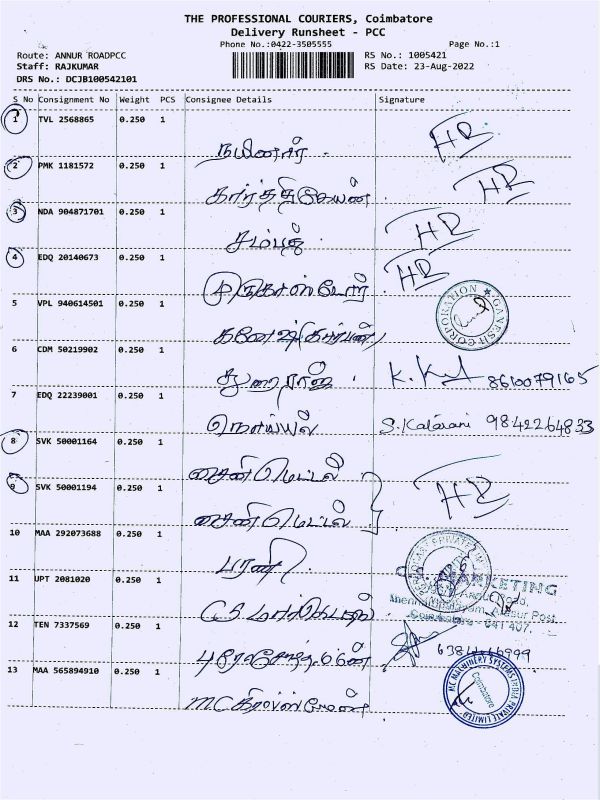 THE PROFESSIONAL COURIERS, Coimbatore
Delivery Runsheet - PCC
Phone No.:0422-3505555 Page No.:1
Route: ANNUR ROADPCC RS No.: 1005421
Staff: RAJKUMAR RS Date: 23-Aug-2022
DRS No.: DCJB100542101
S No Consignment No Weight PCS Consignee Details Signature
1 TVL 2568865 0.250 1 HR
2 PMK 1181572 0.250 1 கார்த்திகேயன் HR
3 NDA 904871701 0.250 1 சம்பத் HR
4 EDQ 20140673 0.250 1 HR
5 VPL 940614501 0.250 1 GANESH CORPORATION
6 CDM 50219902 0.250 1 துரைராஜ் 8610079165
7 EDQ 22239001 0.250 1 நொய்யல் S. Kalarani 9842264833
8 SVK 50001164 0.250 1 சைன் மெட்டல்
9 SVK 50001194 0.250 1 சைன் மெட்டல் HR
10 MAA 292073688 0.250 1 பரணி
11 UPT 2081020 0.250 1 C.S. மார்கெட்டிங்
12 TEN 7337569 0.250 1
13 MAA 565894910 0.250 1 M.C. MC MACHINERY SYSTEMS INDIA PRIVATE LIMITED Coimbatore